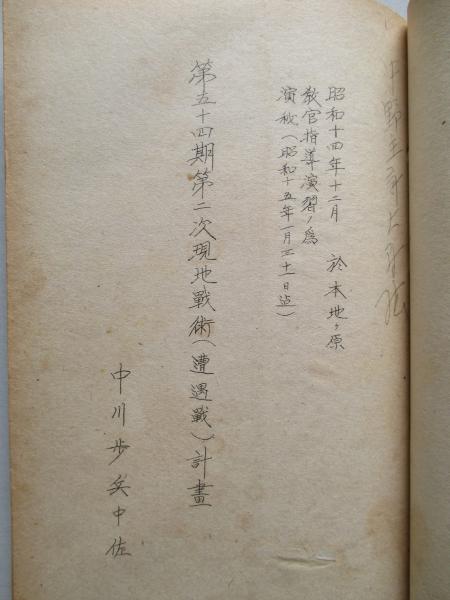 昭和十四年十二月　於本地ヶ原
教官指導演習ノ為
演秘（昭和十五年一月三十一日迠）
第五十四期第二次現地戰術（遭遇戰）計畫
中川步兵中佐